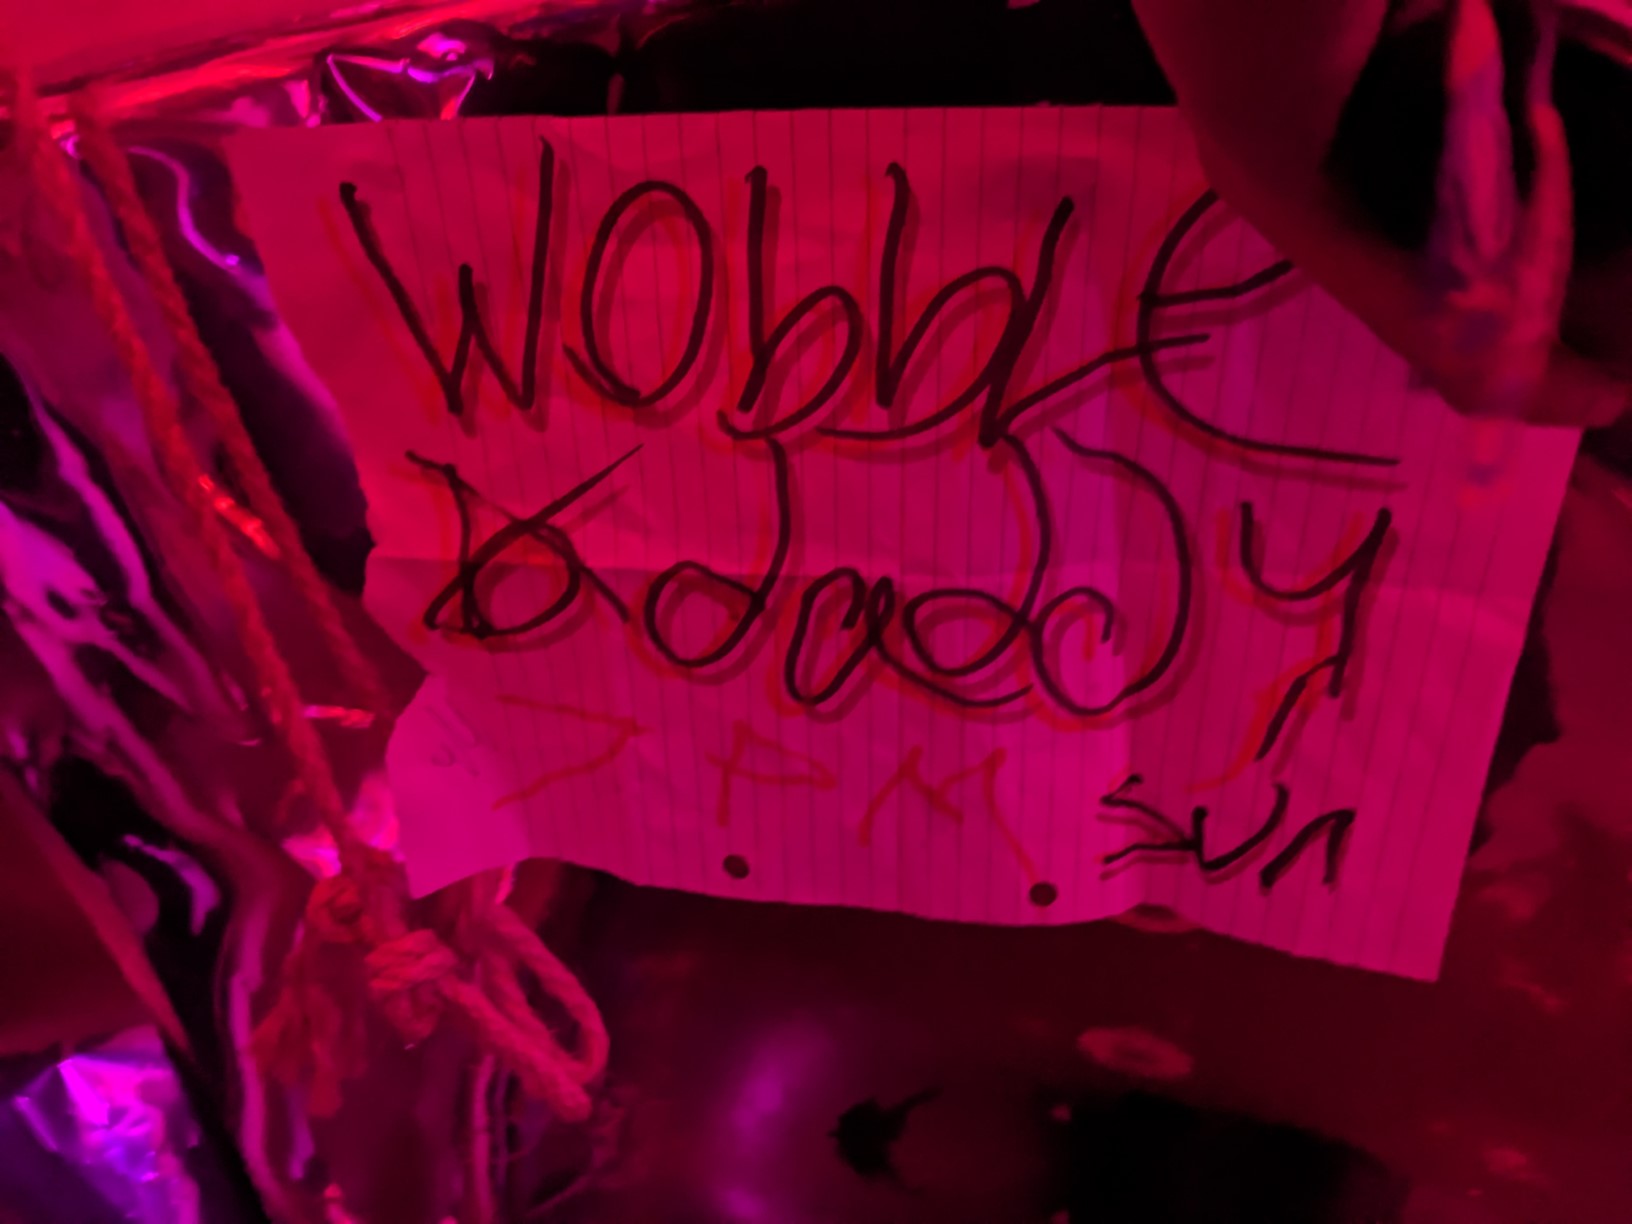 WObblE
daddy
7 PM
Sun